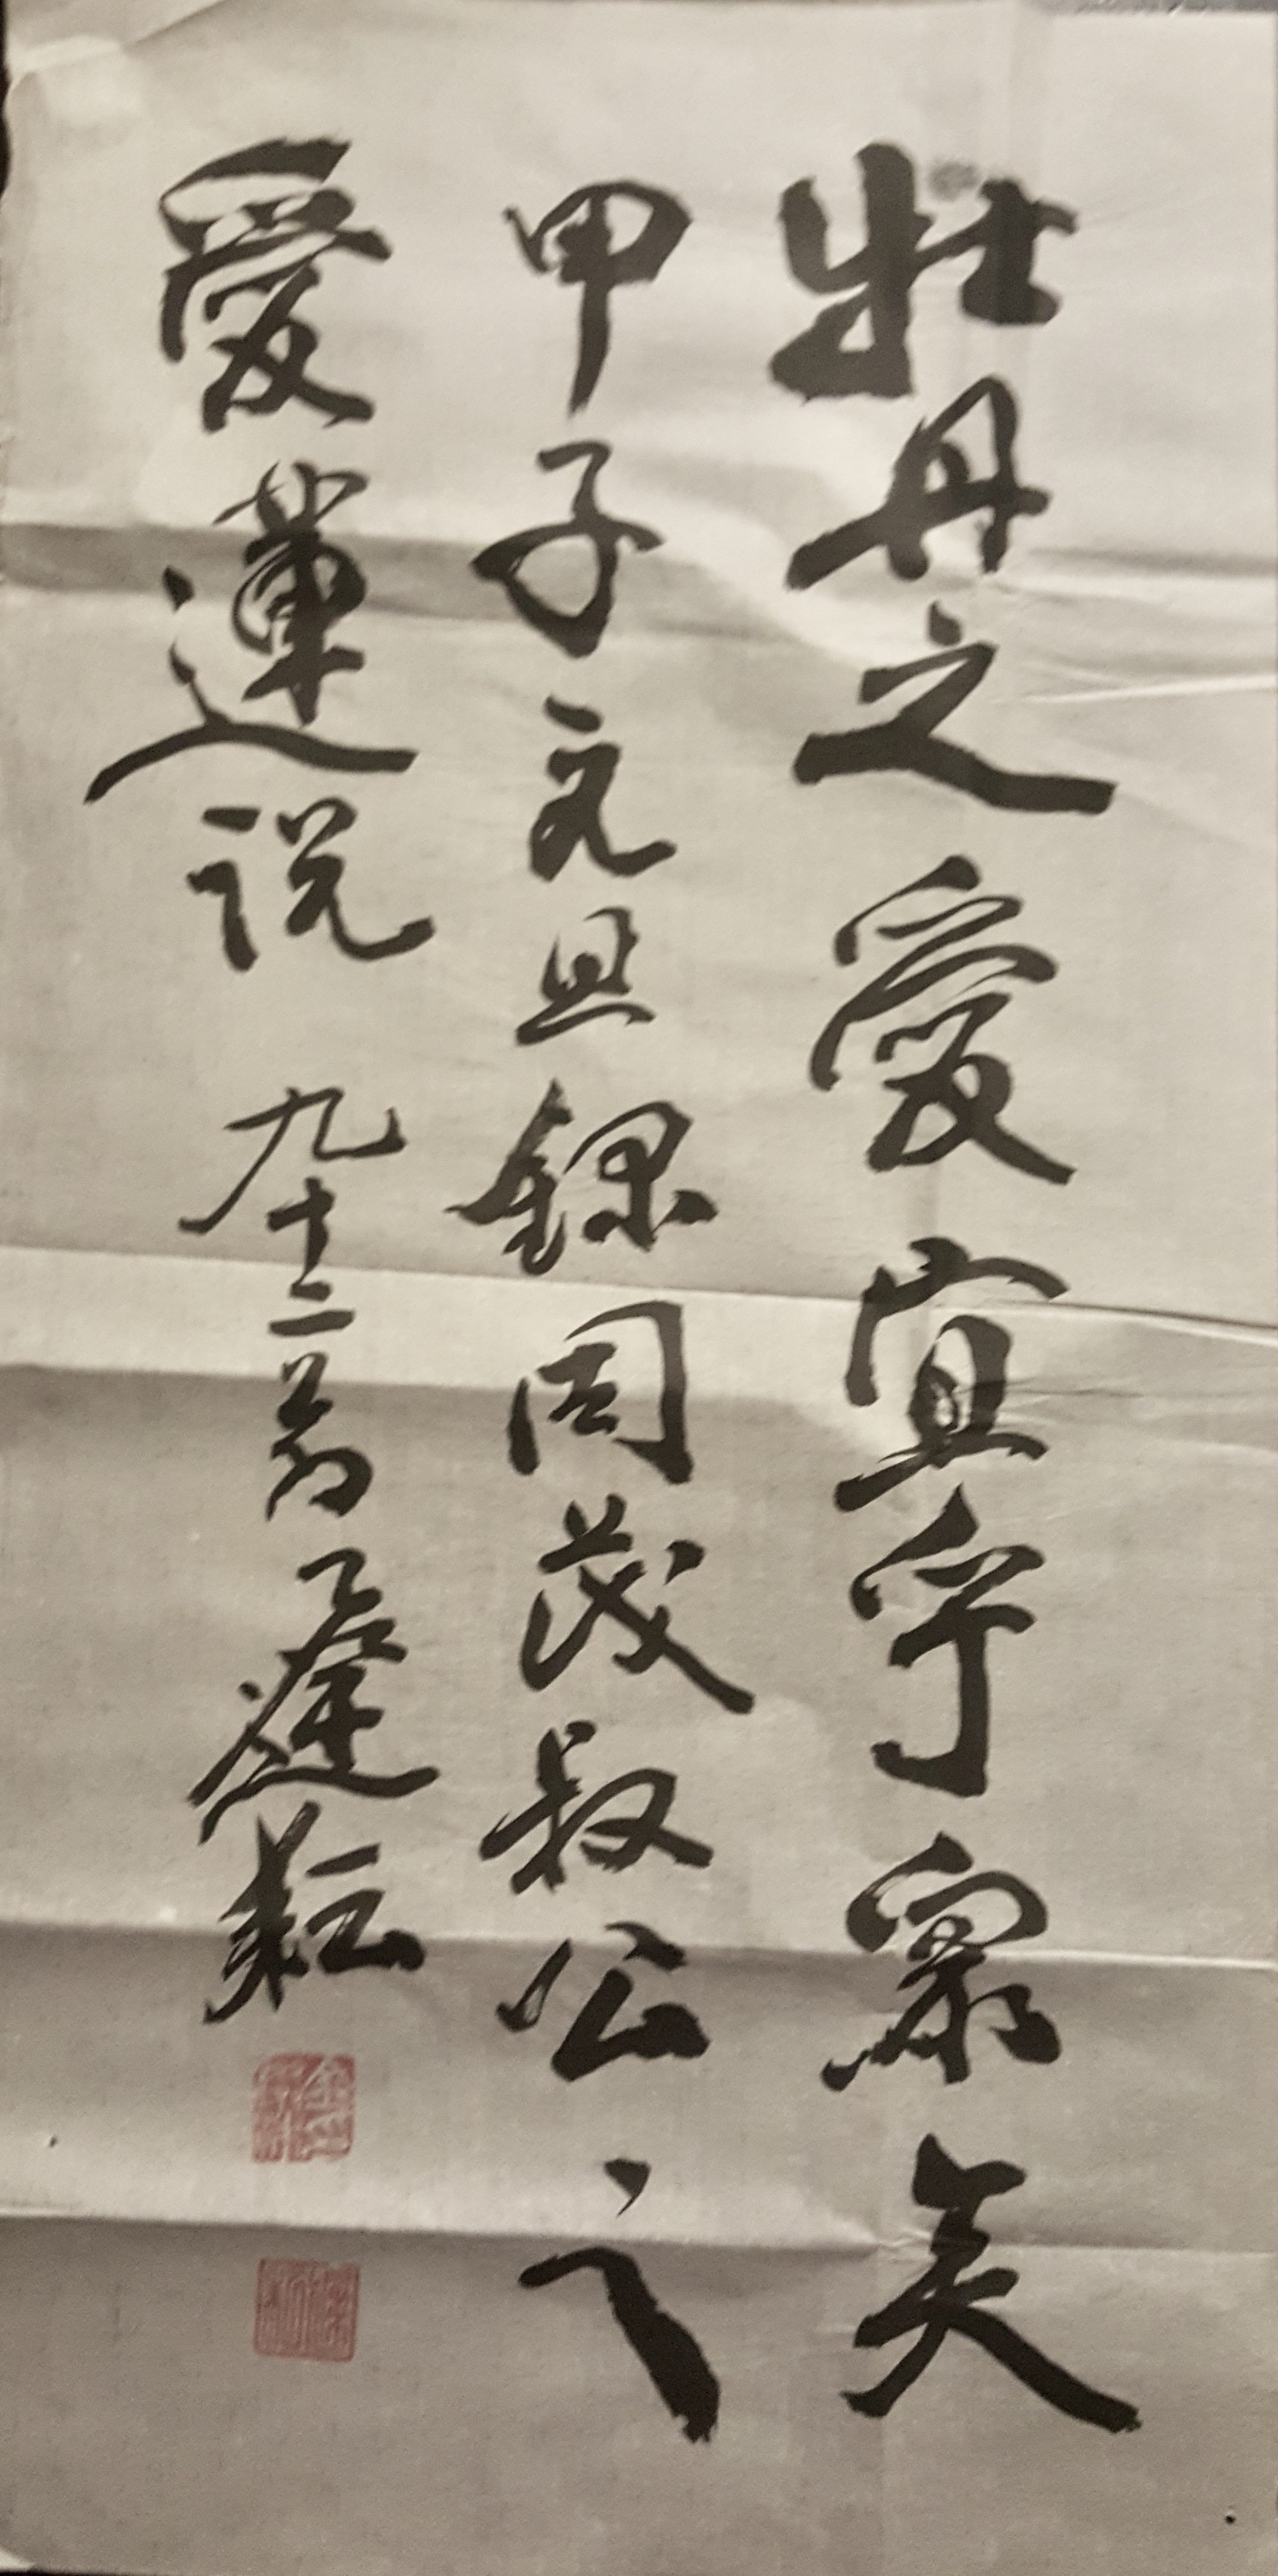 牡丹之愛宜乎衆矣
甲子元旦錄周茂叔公之
愛蓮說 九十二翁